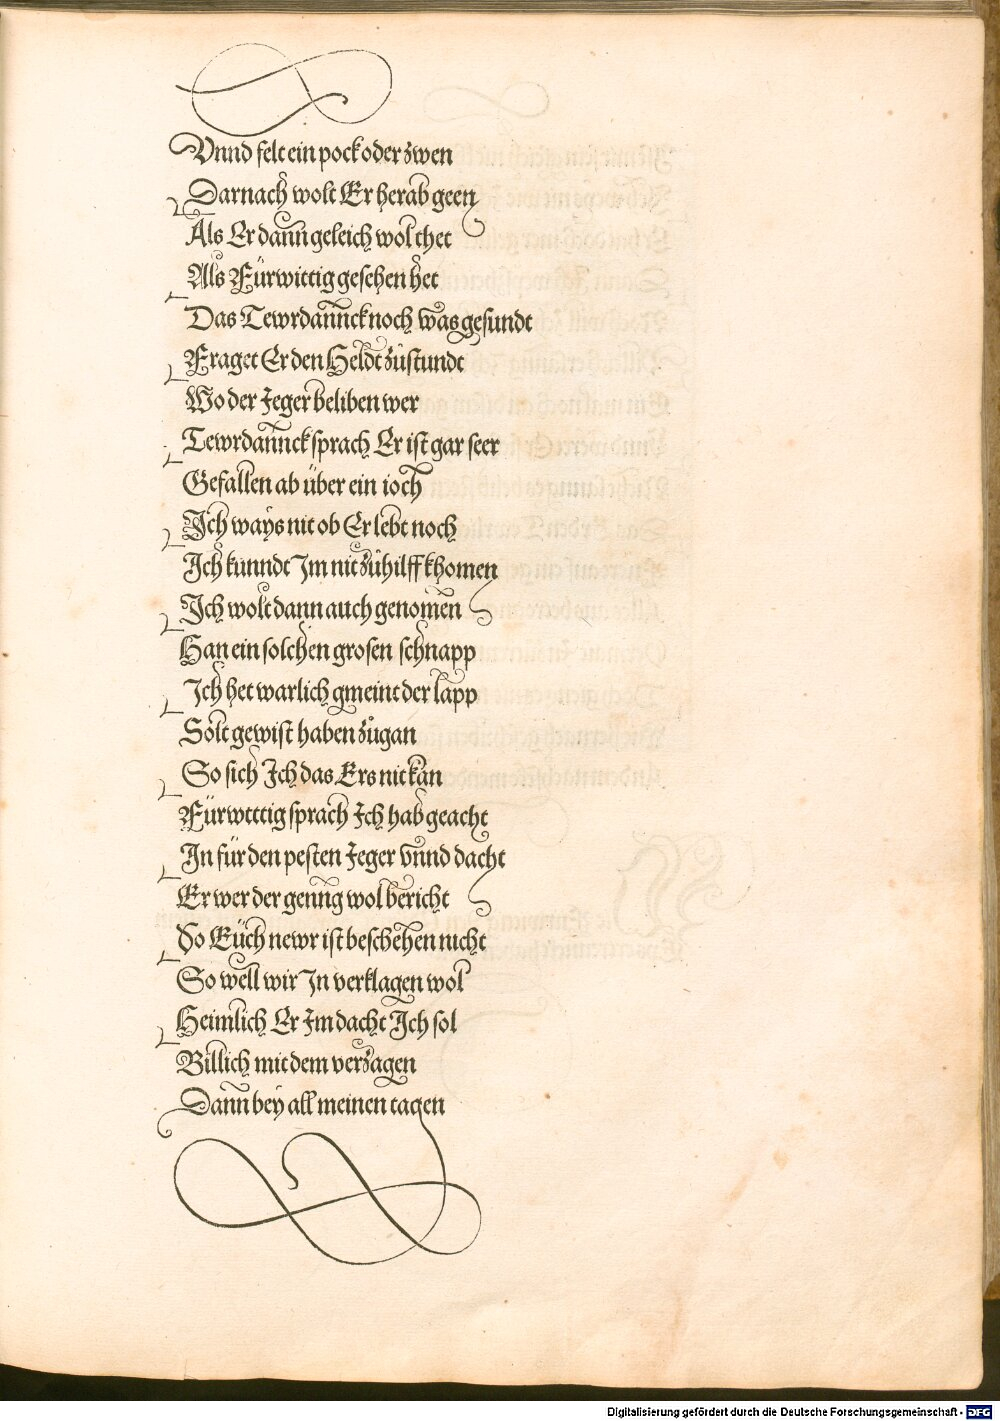 Vnnd felt ein pock oder zwen
Darnach wolt Er herab geen
Als Er dann geleich wol thet
Als Fürwittig gesehen het
Das Tewrdannck noch was gesundt
Fraget Er den Heldt zůstundt
Wo der Jeger beliben wer
Tewrdannck sprach Er ist gar seer
Gefallen ab über ein ioch
Ich ways nit ob Er lebt noch
Ich kunndt Im nit zůhilff khomen
Ich wolt dann auch genomen
Han ein solchen grosen schnapp
Ich het warlich gmeint der lapp
Solt gewist haben zůgan
So sich Ich das Ers nit kan
Fürwtttig sprach Ich hab geacht
In für den pesten Jeger vnnd dacht
Er wer der genng wol bericht
So Euch newr ist beschehen nicht
So well wir In verklagen wol
Heimlich Er Im dacht Ich sol
Billich mit dem verzagen
Dann bey all meinen tagen
Digitalisierung gefördert durch die Deutsche Forschungsgemeinschaft - DFG